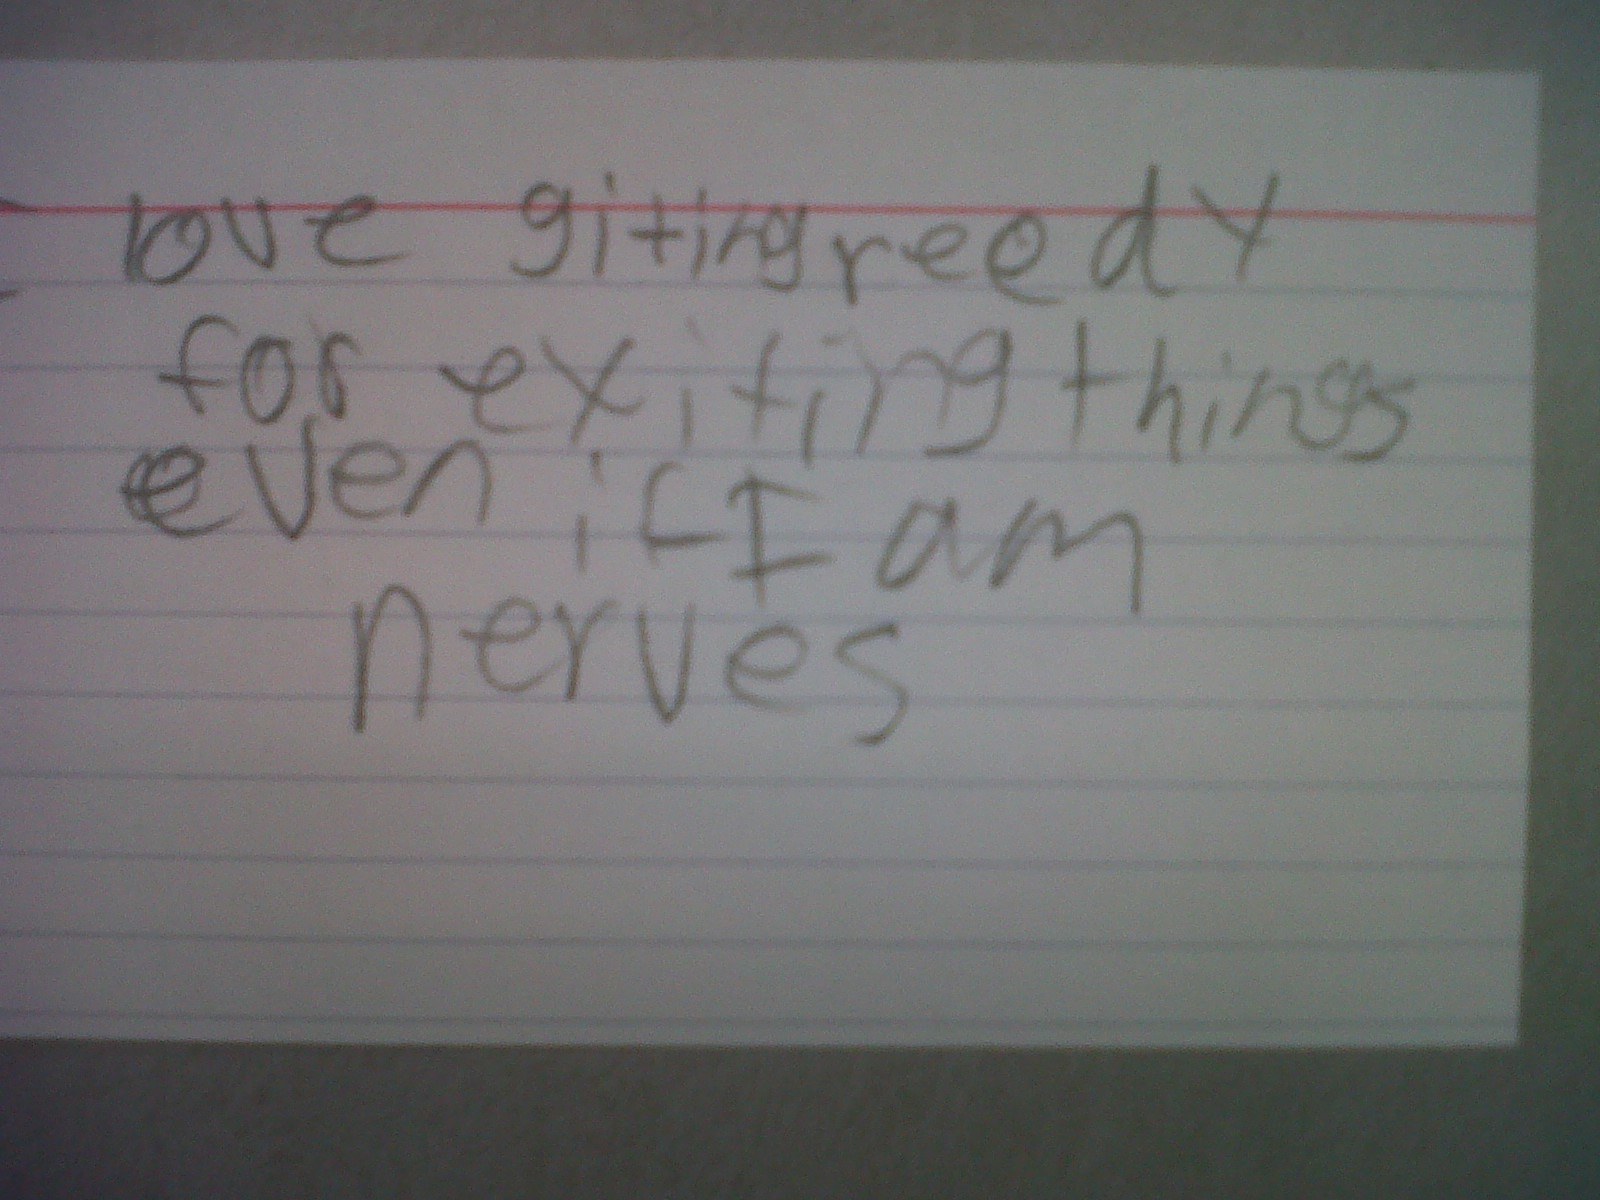 love giting reedy
for exiting things
even if I am
nerves